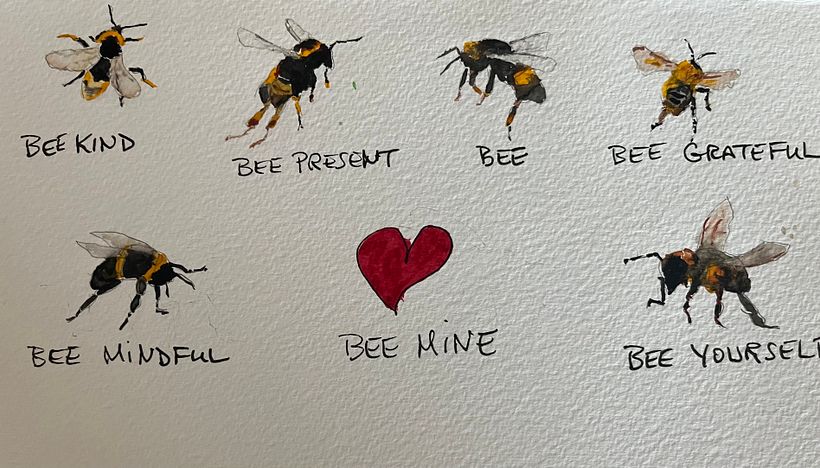 BEE KIND
BEE PRESENT
BEE
BEE GRATEFUL
BEE MINDFUL
BEE MINE
BEE YOURSELF